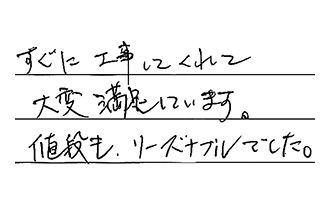 すぐに工事してくれて
大変満足しています。
値段も、リーズナブルでした。